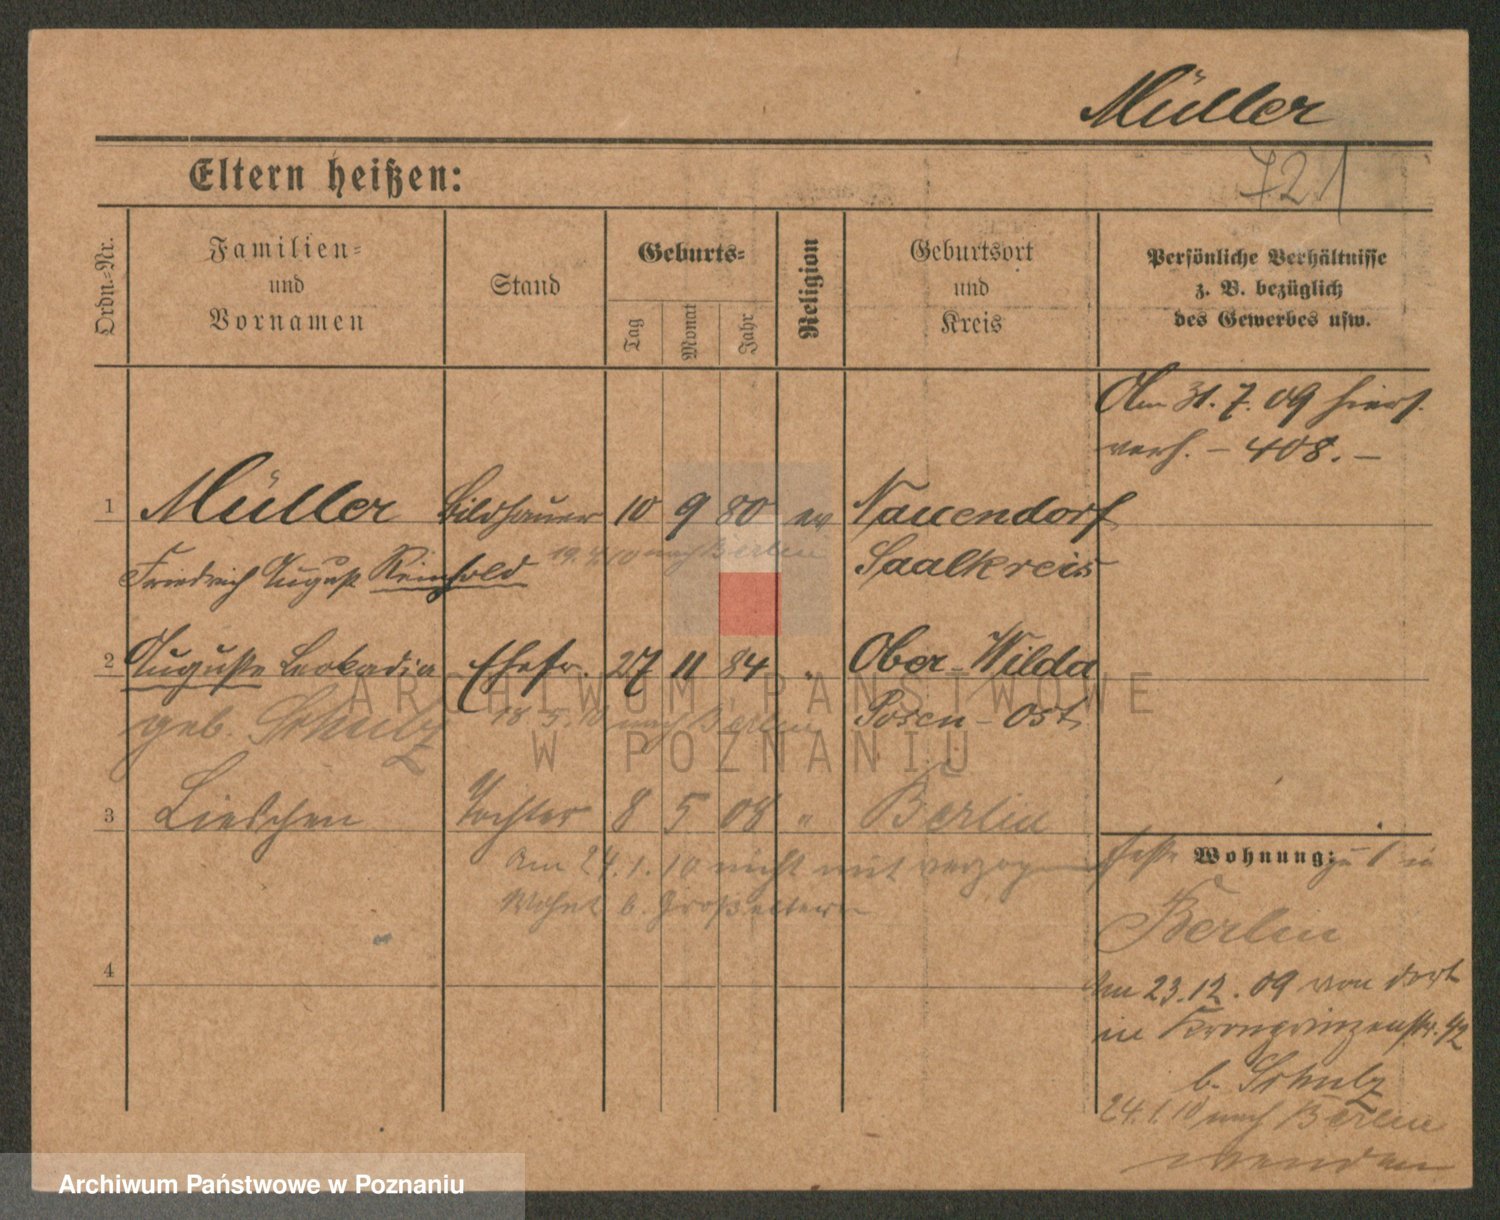 Müller
721
Eltern heißen:
Ordn.-Nr.
Familien-
und
Vornamen
Stand
Geburts-
Tag
Monat
Jahr
Religion
Geburtsort
und
Kreis
Persönliche Verhältnisse
z. B. bezüglich
des Gewerbes usw.
Am 31. 7. 09 hiers.
verh. - 408. -
1 Müller Bildhauer 10 9 80 ev Nauendorf
Friedrich August Reinhold 19.4.10 nach Berlin Saalkreis
2 Auguste Leokadia Ehefr. 27 11 84 " Ober-Wilda
geb. Schulz 18.5.10 nach Berlin Posen-Ost
3 Lieschen Tochter 8 5 08 " Berlin
Am 24.1.10 nicht mit verzogen
Wohnt b. Großeltern
4
Wohnung: zu 1 in
Berlin
Am 23.12.09 von dort
in Kronprinzenstr. 42
b. Schulz
24.1.10 nach Berlin
wenden
ARCHIWUM PAŃSTWOWE
W POZNANIU
Archiwum Państwowe w Poznaniu